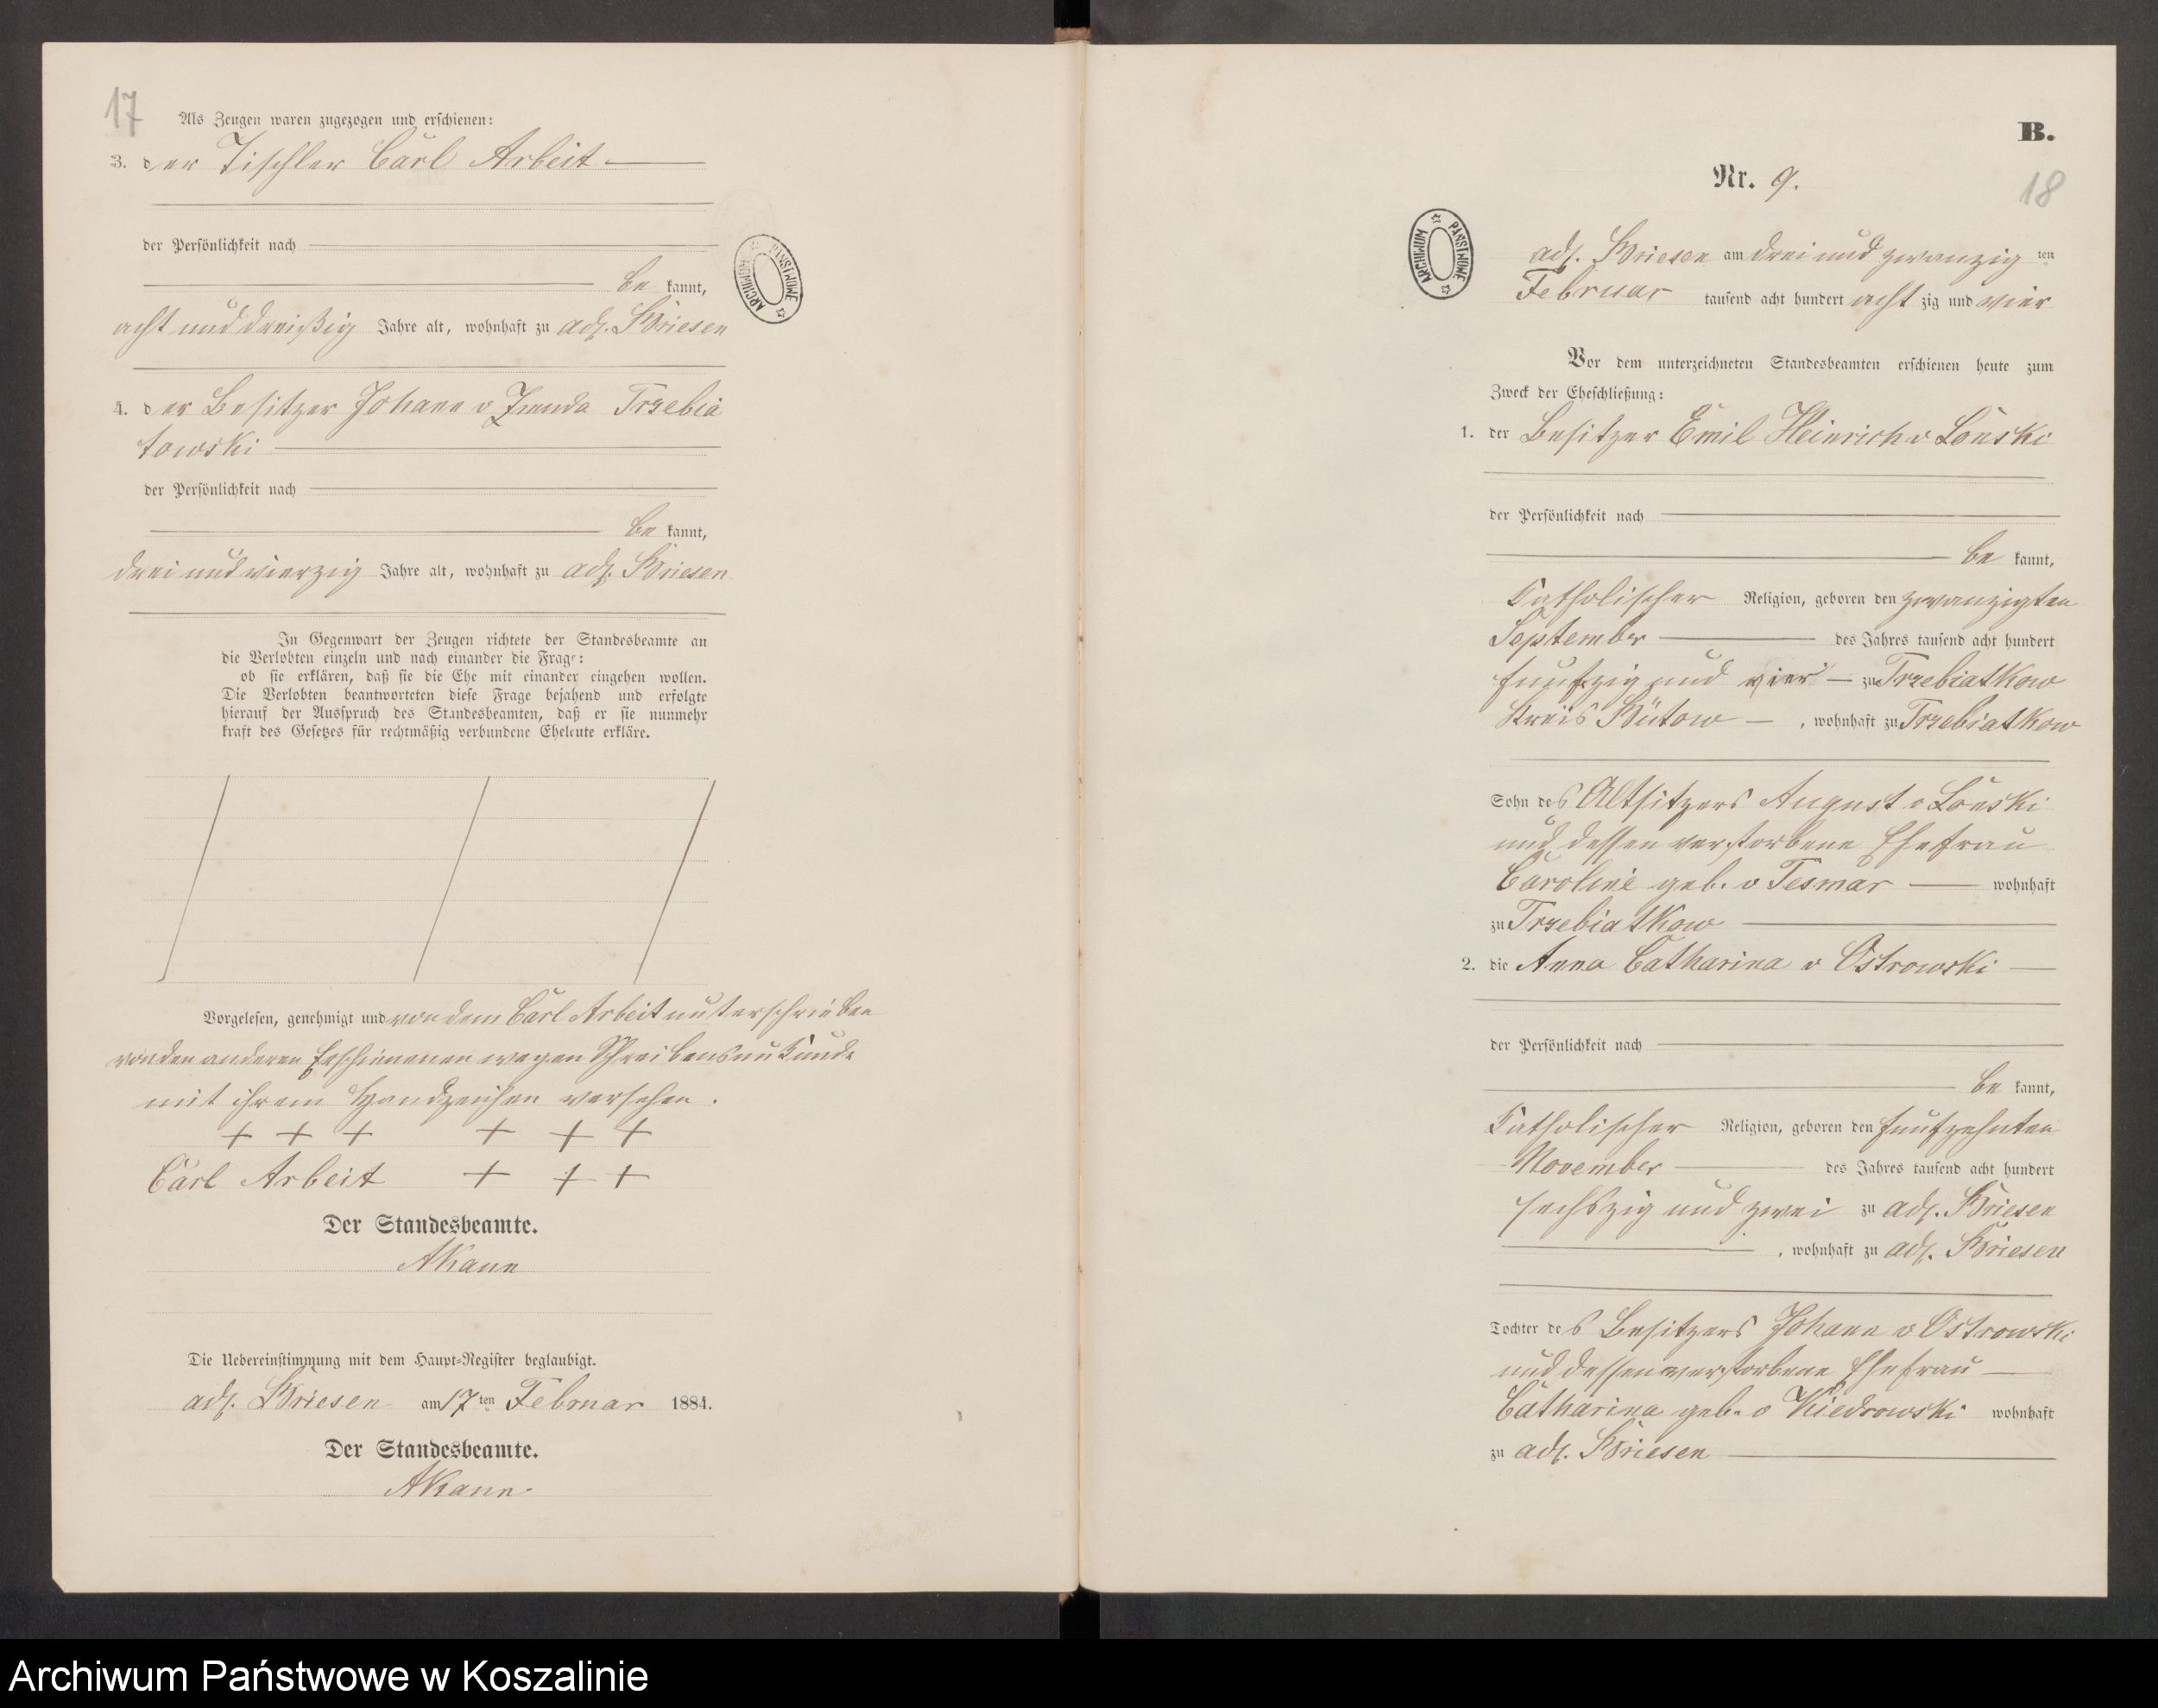 17
Als Zeugen waren zugezogen und erschienen:
3. der Tischler Carl Arbeit
der Persönlichkeit nach
be kannt,
acht und dreißig Jahre alt, wohnhaft zu adl. Briesen
4. der Besitzer Johann v Zmuda Trzebia
towski
der Persönlichkeit nach
be kannt,
drei und vierzig Jahre alt, wohnhaft zu adl. Briesen
In Gegenwart der Zeugen richtete der Standesbeamte an
die Verlobten einzeln und nach einander die Frage:
ob sie erklären, daß sie die Ehe mit einander eingehen wollen.
Die Verlobten beantworteten diese Frage bejahend und erfolgte
hierauf der Ausspruch des Standesbeamten, daß er sie nunmehr
kraft des Gesetzes für rechtmäßig verbundene Eheleute erkläre.
Vorgelesen, genehmigt und von dem Carl Arbeit unterschrieben
von den anderen Erschienenen wegen Schreibensunkunde
mit ihrem Handzeichen versehen.
+ + + + + +
Carl Arbeit + + +
Der Standesbeamte.
AKann
Die Uebereinstimmung mit dem Haupt-Register beglaubigt.
adl. Briesen am 17 ten Februar 1884.
Der Standesbeamte.
AKann
ARCHIWUM PAŃSTWOWE
B.
Nr. 9.
18
ARCHIWUM PAŃSTWOWE
adl. Briesen am drei und zwanzig ten
Februar tausend acht hundert acht zig und vier
Vor dem unterzeichneten Standesbeamten erschienen heute zum
Zweck der Eheschließung:
1. der Besitzer Emil Heinrich v Lonski
der Persönlichkeit nach
be kannt,
Katholischer Religion, geboren den zwanzigten
September des Jahres tausend acht hundert
funfzig und vier zu Trzebiatkow
Kreis Bütow, wohnhaft zu Trzebiatkow
Sohn des Altsitzers August v Lonski
und dessen verstorbene Ehefrau
Caroline geb. v Tesmar wohnhaft
zu Trzebiatkow
2. die Anna Catharina v Ostrowski
der Persönlichkeit nach
be kannt,
Katholischer Religion, geboren den funfzehnten
November des Jahres tausend acht hundert
sechszig und zwei zu adl. Briesen
, wohnhaft zu adl. Briesen
Tochter des Besitzers Johann v Ostrowski
und dessen verstorbene Ehefrau
Catharina geb. v Kiedrowski wohnhaft
zu adl. Briesen
Archiwum Państwowe w Koszalinie